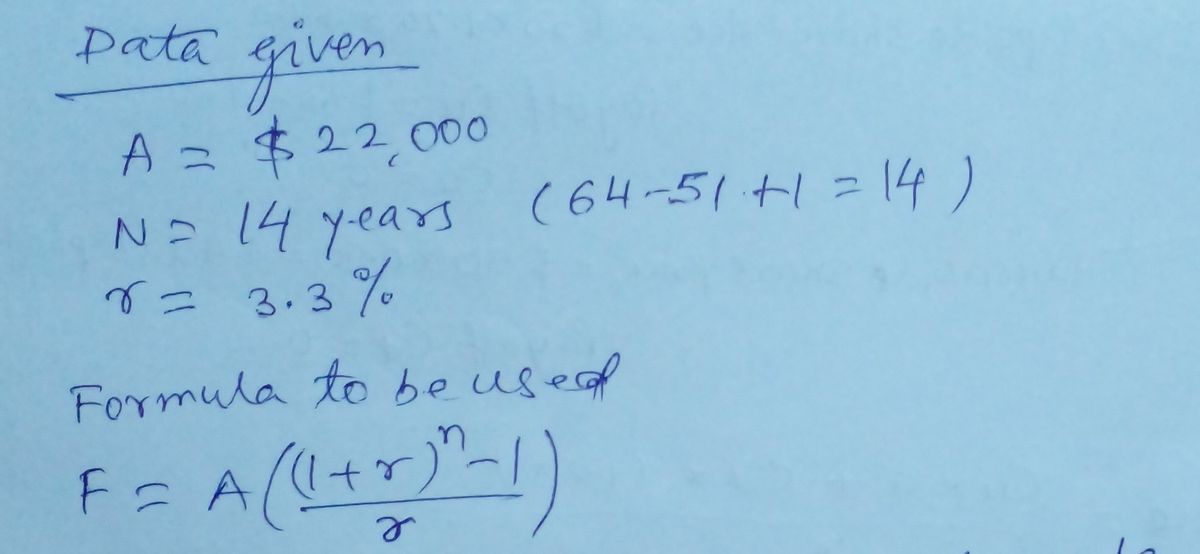 Data given
A = $ 22,000
N = 14 years (64-51+1 = 14)
r = 3.3%
Formula to be used
F = A((1+r)^n-1/r)